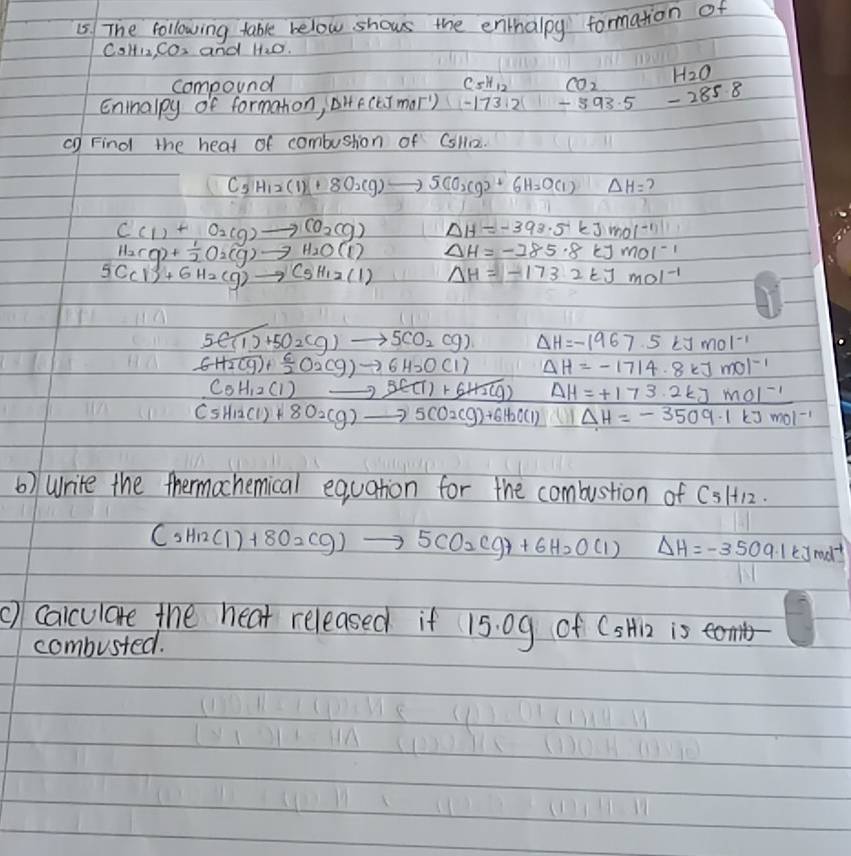 15. The following table below shows the enthalpy formation of
C5H12, CO2 and H2O.
Compound C5H12 CO2 H2O
Enthalpy of formation, ΔHf (kJ mol-1) -173.2 -393.5 -285.8
a) Find the heat of combustion of C5H12.
C5H12(l) + 8O2(g) → 5CO2(g) + 6H2O(l) ΔH=?
C(l) + O2(g) → CO2(g) ΔH = -393.5 kJ mol-1
H2(g) + 1/2 O2(g) → H2O(l) ΔH = -285.8 kJ mol-1
5C(l) + 6H2(g) → C5H12(l) ΔH = -173.2 kJ mol-1
5C(l) + 5O2(g) → 5CO2(g) ΔH = -1967.5 kJ mol-1
6H2(g) + 6/2 O2(g) → 6H2O(l) ΔH = -1714.8 kJ mol-1
C5H12(l) → 5C(l) + 6H2(g) ΔH = +173.2 kJ mol-1
C5H12(l) + 8O2(g) → 5CO2(g) + 6H2O(l) ΔH = -3509.1 kJ mol-1
b) Write the thermochemical equation for the combustion of C5H12.
C5H12(l) + 8O2(g) → 5CO2(g) + 6H2O(l) ΔH = -3509.1 kJ mol-1
c) Calculate the heat released if 15.0g of C5H12 is comb
combusted.